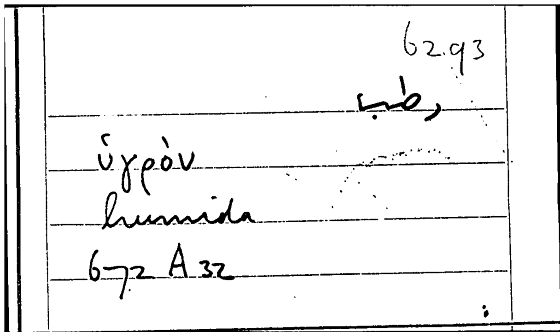 62.93
رطب
ὑγρόν
humida
672 A 32